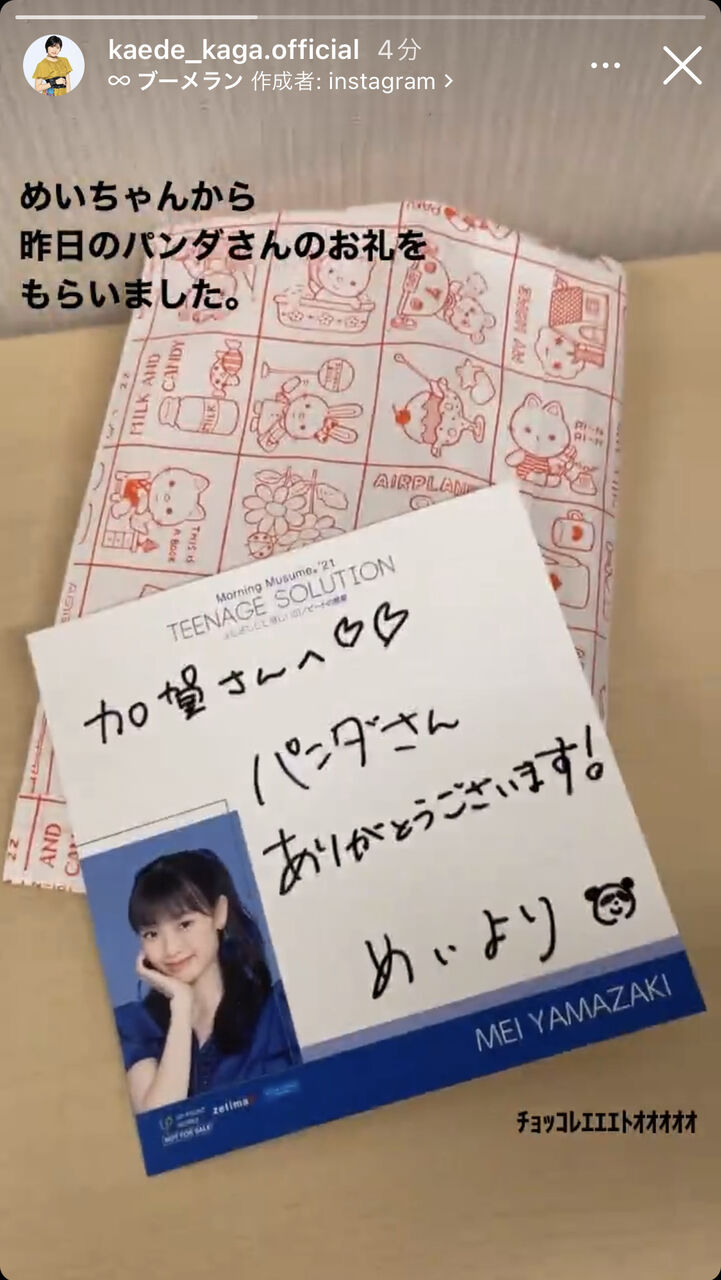 kaede_kaga.official 4分
∞ ブーメラン 作成者: instagram >
めいちゃんから
昨日のパンダさんのお礼を
もらいました。
MILK AND
CANDY
MILK
AIRPLANE
THIS IS
A BOOK
Morning Musume。'21
TEENAGE SOLUTION
加賀さんへ♡♡
パンダさん
ありがとうございます!
めいより
AND
22
MEI YAMAZAKI
UP-FRONT WORKS
zetima
NOT FOR SALE
ﾁｮｯｺﾚｴｴｴﾄｵｵｵｵｵ